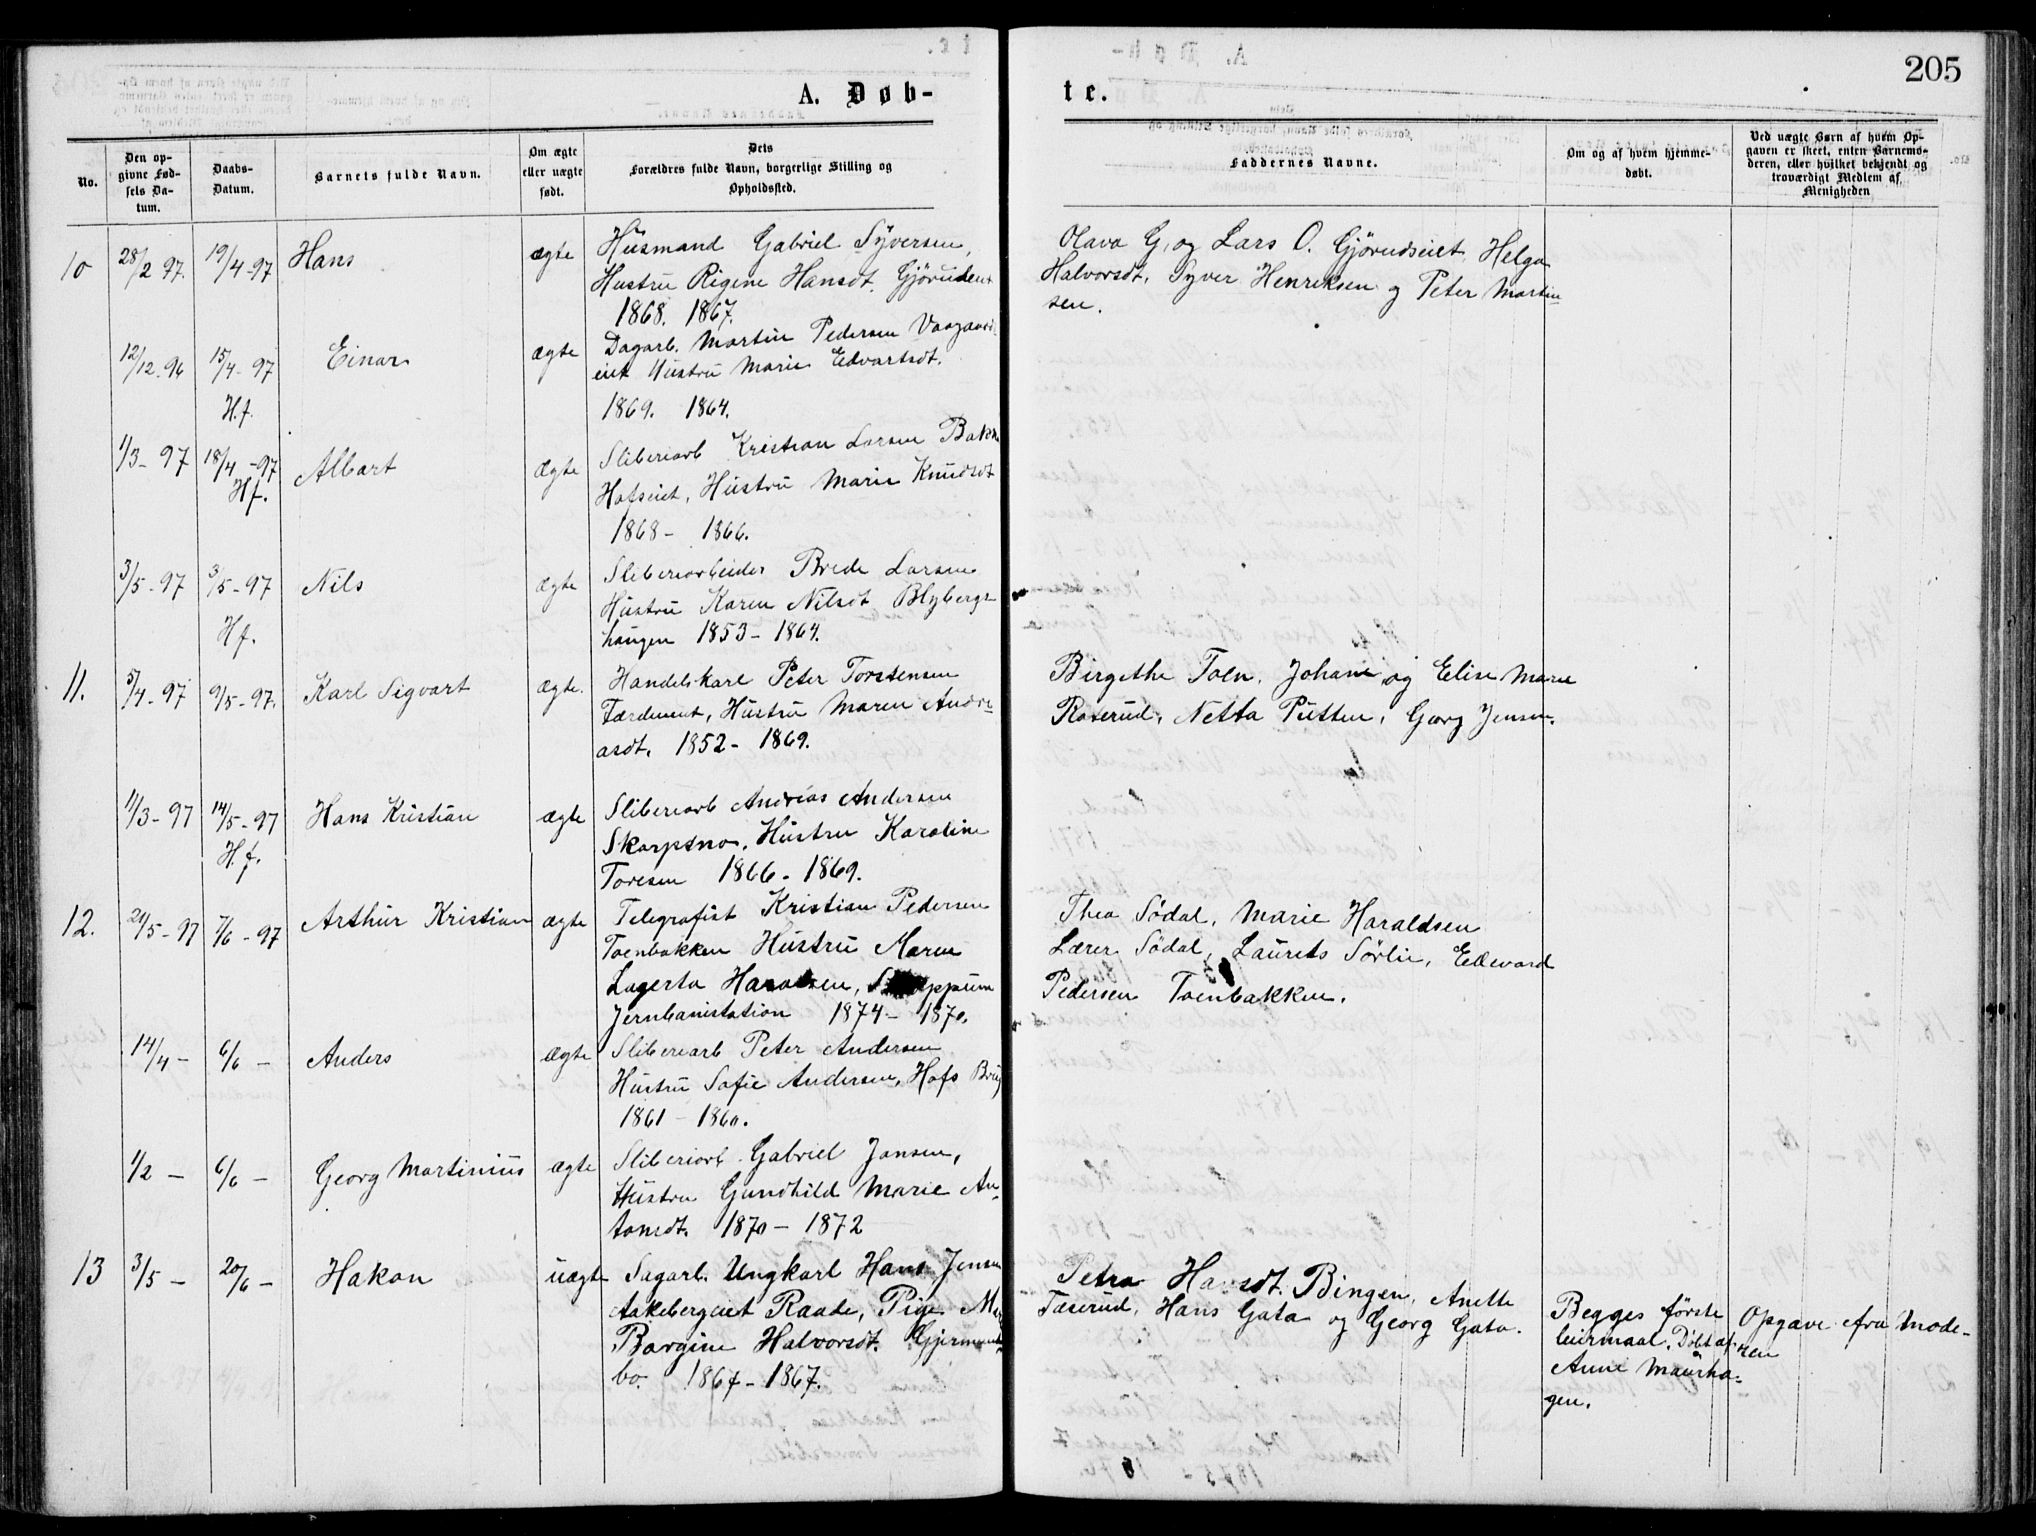 205
A. Døb-
te.
No.
Den op-
givne Fød-
sels Da-
tum.
Daabs-
Datum.
Barnets fulde Navn.
Om ægte
eller uægte
født.
Dets
Forældres fulde Navn, borgerlige Stilling og
Opholdssted.
Faddernes Navne.
Om og af hvem hjemme-
døbt.
Ved uægte Børn af hvem Op-
gaven er skeet, enten Barnemo-
deren, eller hvilket bekjendt og
troværdigt Medlem af
Menigheden
10 28/2 97. 19/4-97 Hans ægte Husmand Gabriel Syversen,
Hustru Rigine Hansdt. Gjørudeiet
1868. 1867.
Olava G. og Lars O. Gjørudseiet, Helga
Halvorsdt. Syver Henriksen og Peter Martin
sen.
12/12.96 15/4-97 Einar ægte Dagarb. Martin Pedersen
eiet Hustru Marie Edvartsdt.
H.f. 1869. 1864.
1/3-97 18/4-97 Albart ægte Sliberiarb Kristian Larsen
H.f. Hofseiet, Hustru Marie Knudsdt
1868- 1866.
3/5-97 3/5-97 Nils ægte Sliberiarbeider Brede Larsen
Hustru Karen Nilsdt Blybergs-
H.f. haugen 1853- 1864.
11. 5/4-97 9/5-97. Karl Sigvart ægte. Handelskarl Peter Torstensen
Færdeneiet, Hustru Maren Andre-
asdt. 1852- 1869.
Birgithe Toen, Johan og Elise Marie
Roserud, Netta Putten, Georg Jensen.
11/3-97 14/5-97 Hans Kristian ægte Sliberiarb Andreas Andersen
H.f. Skarpsno, Hustru Karoline
Toresen 1866- 1869.
12. 21/5-97 7/6-97 Arthur Kristian ægte Telegrafist Kristian Pedersen
Toenbakken Hustru Maren
Lagerta
Jernbanestation 1874- 1870.
Thea Sødal, Marie Haraldsen
Lærer Sødal, Laurits Sørlie, Edevard
Pedersen Toenbakken.
14/4- 6/6- Anders ægte Sliberiarb Peter Andersen
Hustru Sofie Andersen, Hofs Brug
1861- 1860.
1/2- 6/6- Georg Martinius ægte Sliberiarb Gabriel Jansen,
Hustru Gundhild Marie An-
tonsdt. 1870- 1872
13 3/5- 20/6- Hakon uægte Sagarb. Ungkarl Hans Jensen
Aakebergeiet Raade, Pige
Borgine Halvorsdt.
bo. 1867- 1867.
Petra Hansdt. Bingen, Anette
Taserud, Hans Gata og Georg Gata.
Begges første
leiermaal. Døbt af
Anne Maurha-
gen.
Opgave fra Mode-
ren